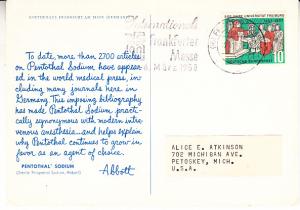 GOETHEHAUS FRANKFURT AM MAIN (GERMANY)
To date, more than 2700 articles
on Pentothal Sodium have appear-
ed in the world medical press, in-
cluding many journals here in
Germany. This imposing bibliography
has made Pentothal Sodium practi-
cally synonymous with modern intra-
venous anesthesia...and helps explain
why Pentothal continues to grow in
favor as an agent of choice.
PENTOTHAL® SODIUM
(Sterile Thiopental Sodium, Abbott)
Abbott
Internationale
Frankfurter
Messe
MÄRZ 1958
500 JAHRE UNIVERSITÄT FREIBURG
DEUTSCHE BUNDESPOST
10
ALICE E. ATKINSON
702 MICHIGAN AVE.
PETOSKEY, MICH.
U.S.A.